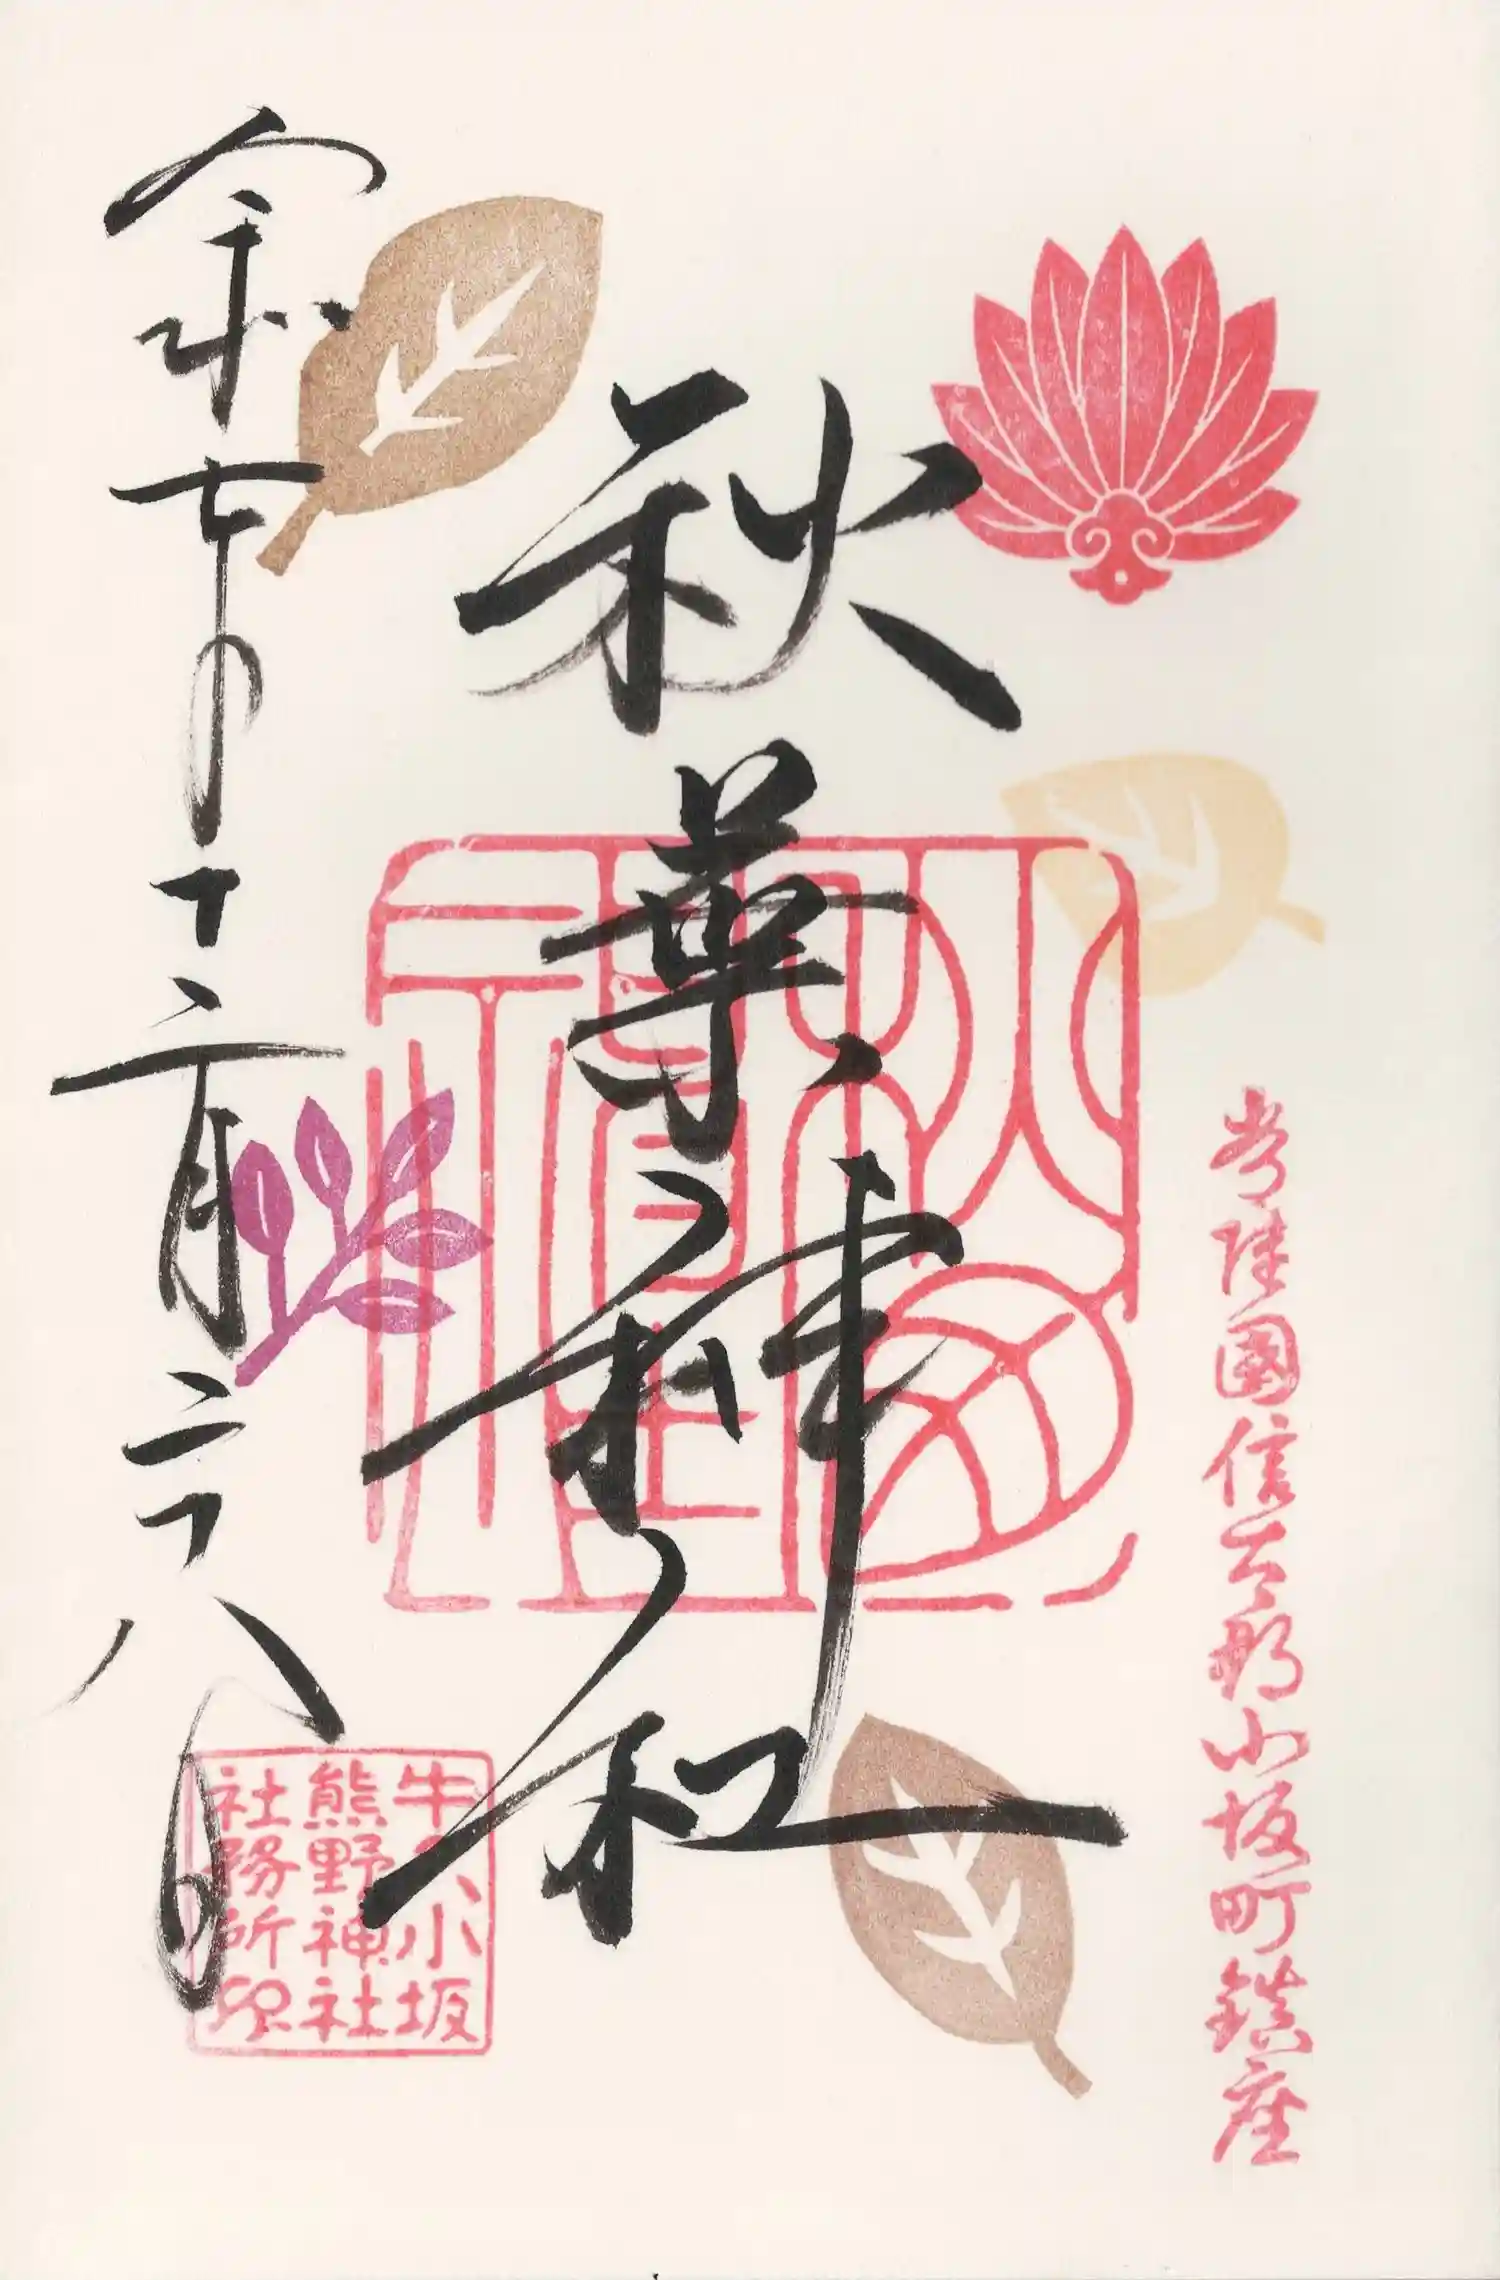 常陸國信太郡小坂町鎮座
秋葉神社
令和七年十二月二十八日
牛久小坂
熊野神社
社務所印